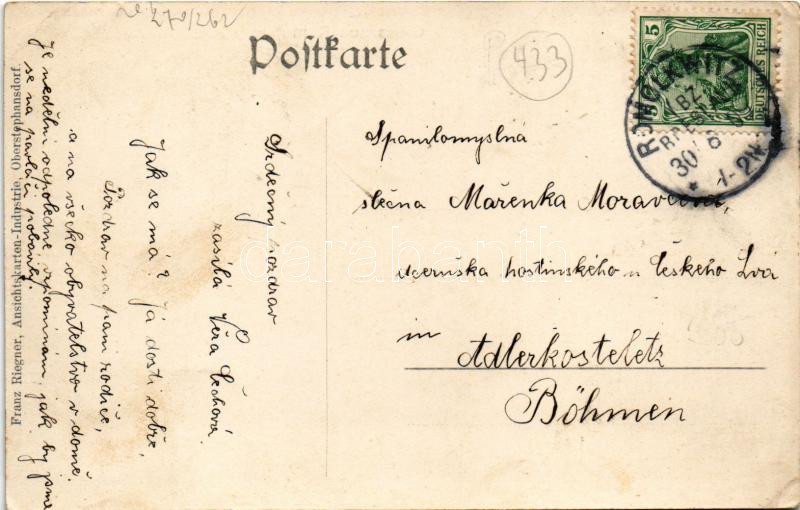 270/262
Postkarte
433
5
DEUTSCHES REICH
BZ. BRESLAU
30 8
1-2N
Spanilomyslná
slečna Mařenka Moravcová,
dceruška hostinského u Českého Lva
in
Adlerkosteletz
Böhmen
Srdečný pozdrav
zasílá Věra Čechová.
Jak se má? Já dosti dobře,
Pozdrav na paní rodiče,
a na všecko obyvatelstvo v domě.
Je nedělní odpoledne, vzpomínám, jak by jsme
se na pavlači pobavily.
Franz Riegner, Ansichtskarten-Industrie, Oberstephansdorf.
darabanth